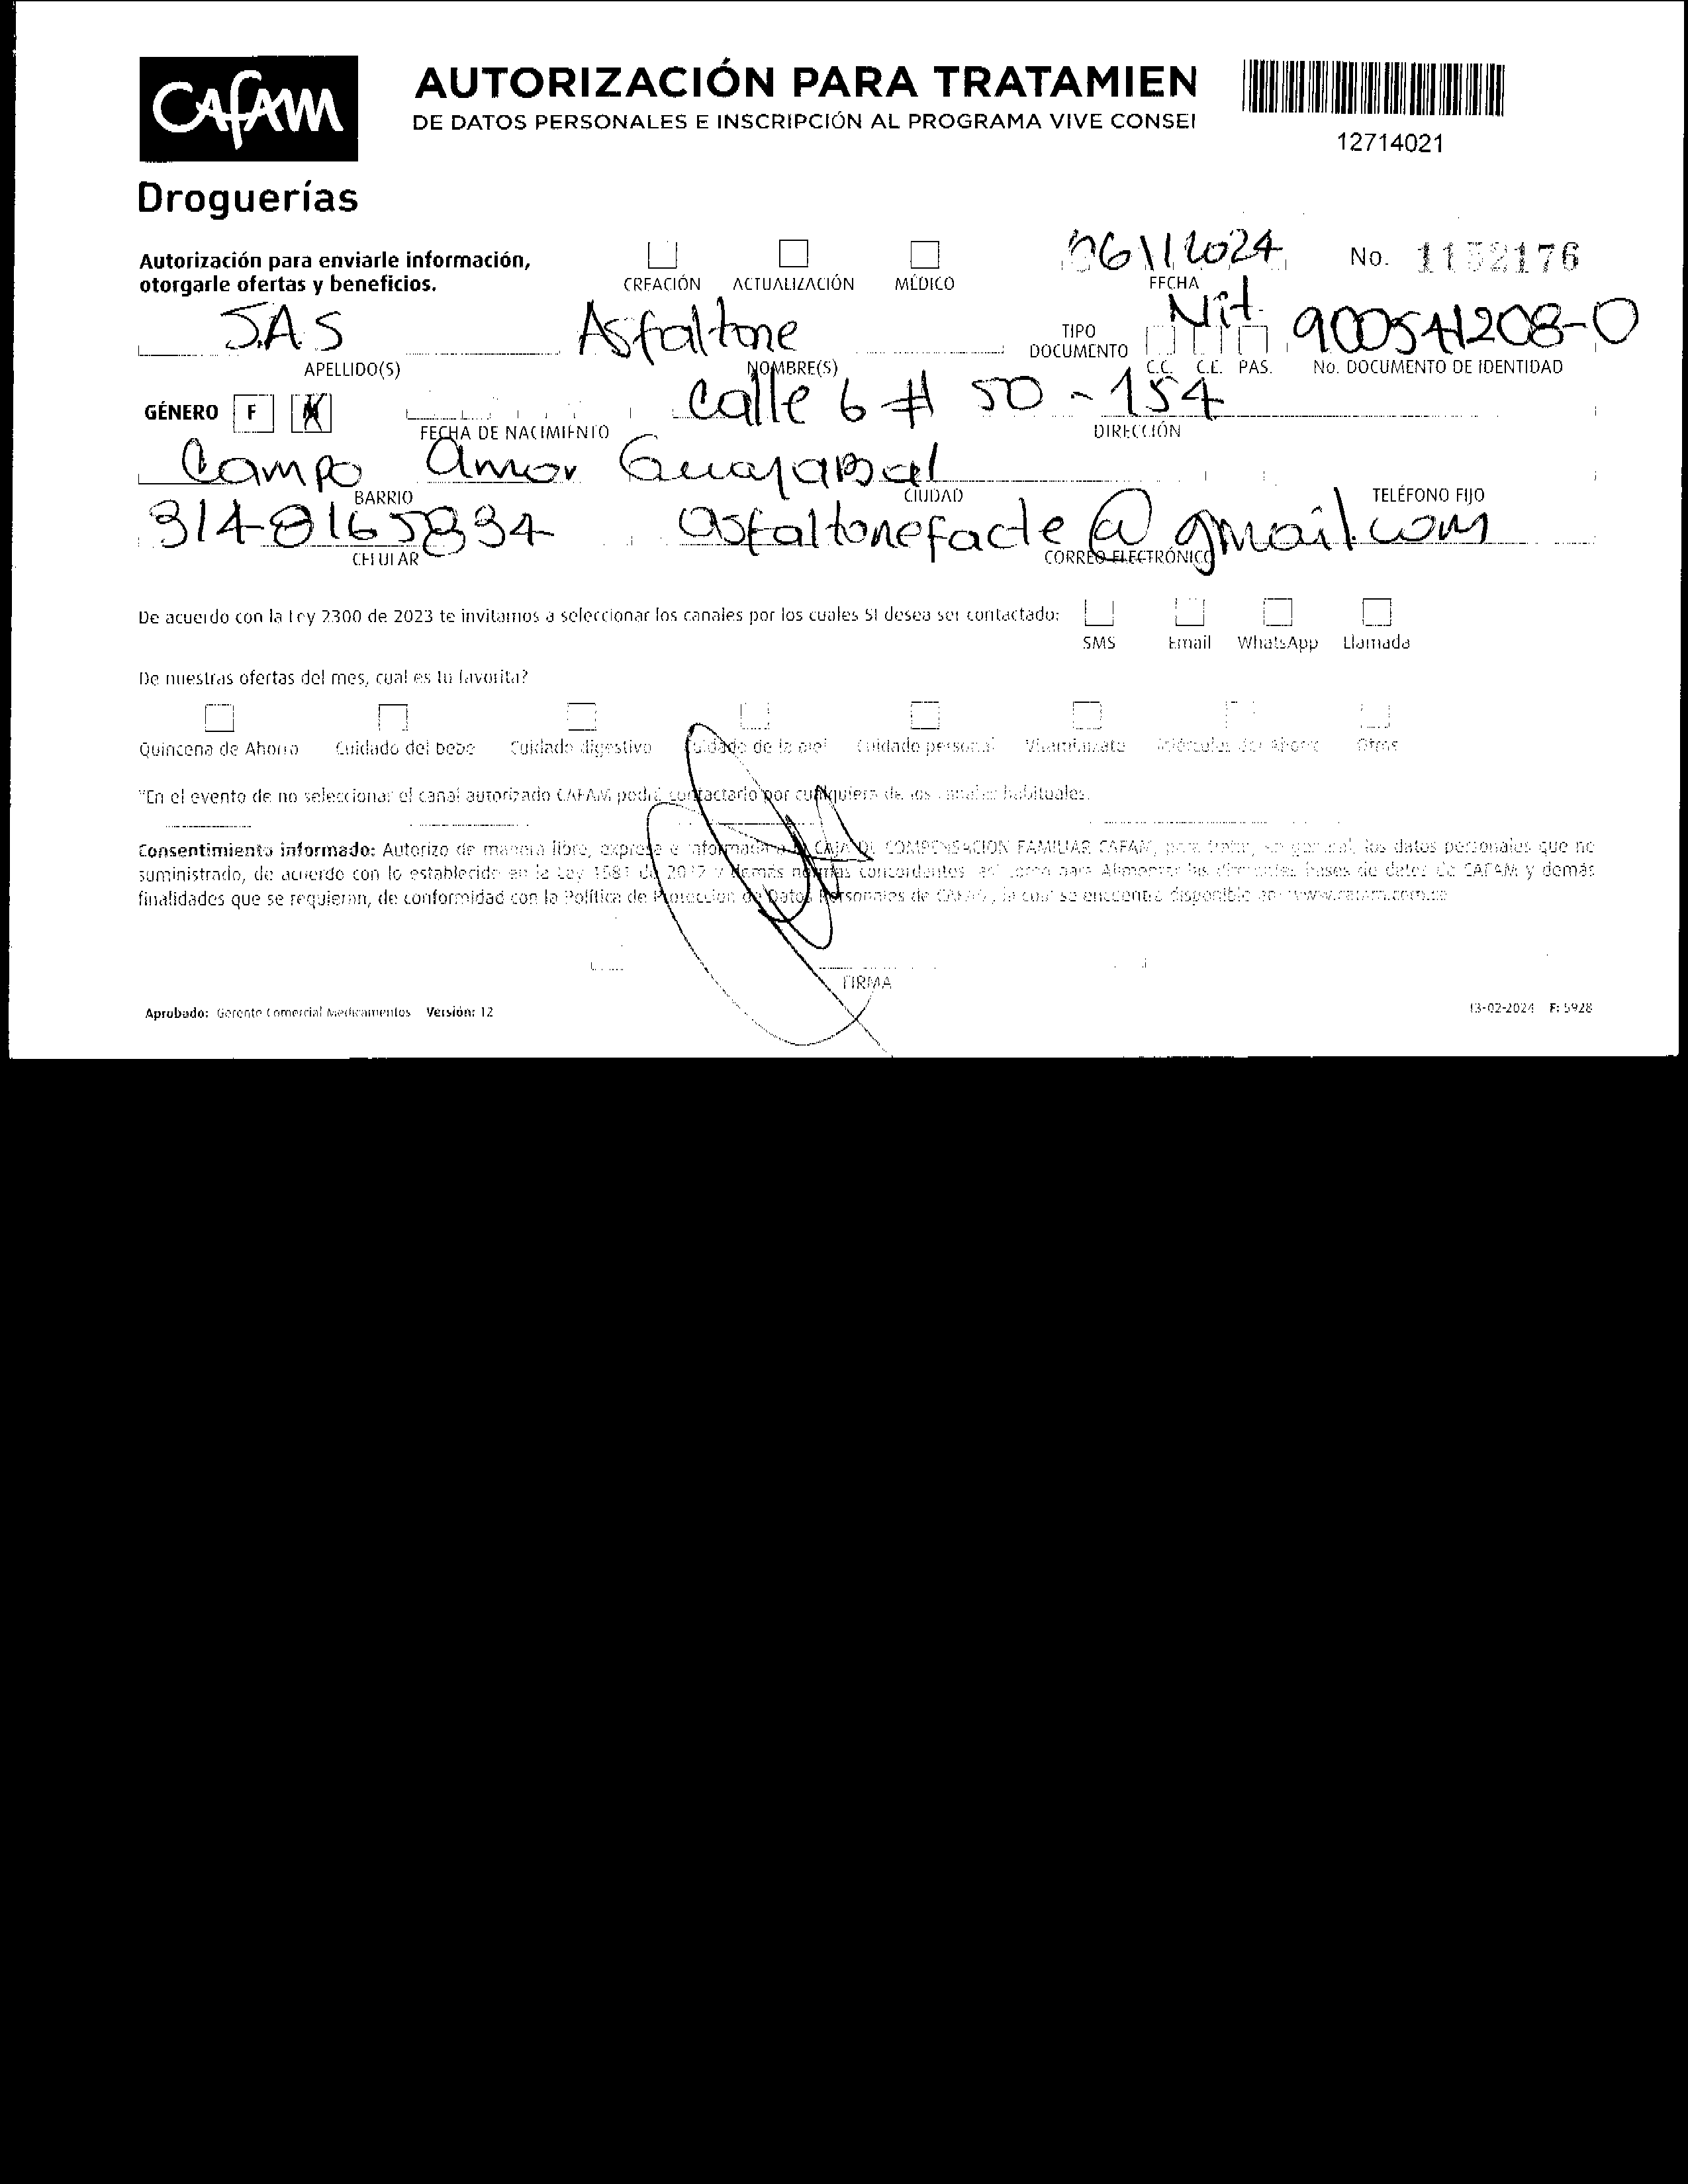 CAFAM
Droguerías
AUTORIZACIÓN PARA TRATAMIEN
DE DATOS PERSONALES E INSCRIPCIÓN AL PROGRAMA VIVE CONSEI
12714021
Autorización para enviarle información,
otorgarle ofertas y beneficios.
CREACIÓN ACTUALIZACIÓN MÉDICO
06112024
FECHA
No. 1152176
S.A.S Asfaltone Nit. 900541208-0
APELLIDO(S) NOMBRE(S) TIPO DOCUMENTO C.C. C.E. PAS. No. DOCUMENTO DE IDENTIDAD
GÉNERO F M calle 6 # 50 - 154
FECHA DE NACIMIENTO DIRECCIÓN
Campo amor Guayabal
BARRIO CIUDAD TELÉFONO FIJO
3148165834 asfaltonefacte@gmail.com
CELULAR CORREO ELECTRÓNICO
De acuerdo con la Ley 2300 de 2023 te invitamos a seleccionar los canales por los cuales SI desea ser contactado:
SMS Email WhatsApp Llamada
De nuestras ofertas del mes, cual es tu favorita?
Quincena de Ahorro Cuidado del bebe Cuidado digestivo Cuidado de la piel Cuidado personal Miércoles del Ahorro Otros
"En el evento de no seleccionar el canal autorizado CAFAM podrá contactarlo por cualquiera de los canales habituales.
Consentimiento informado: Autorizo de manera libre, expresa e informada a la CAJA DE COMPENSACION FAMILIAR CAFAM, para tratar, en general, los datos personales que he
suministrado, de acuerdo con lo establecido en la Ley 1581 de 2012 y demás normas concordantes así como para Alimentar las diferentes bases de datos de CAFAM y demás
finalidades que se requieran, de conformidad con la Política de Protección de Datos Personales de CAFAM, la cual se encuentra disponible en: www.cafam.com.co
FIRMA
Aprobado: Gerente Comercial Medicamentos Versión: 12
13-02-2024 F: 5928